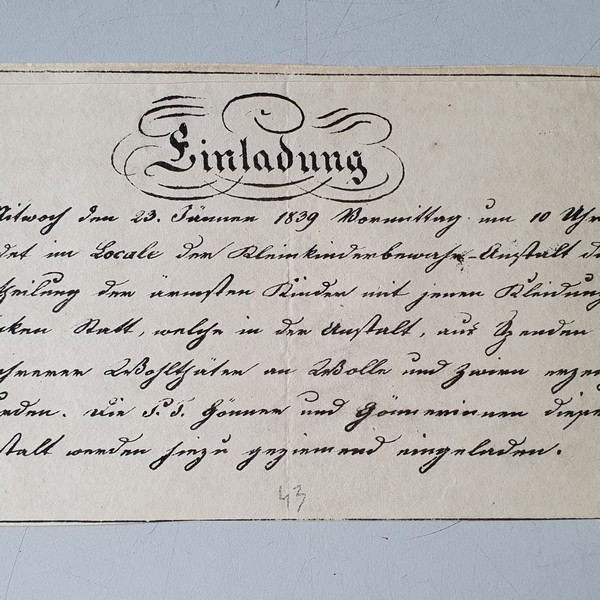 Einladung
Mitwoch den 23. Jänner 1839 Vormittag um 10 Uhr
det im Locale der Kleinkinderbewahr-Anstalt di
theilung der ärmsten Kinder mit jenen Kleidung
cken Statt, welche in der Anstalt, aus Spenden
ehrerer Wohlthäter an Wolle und Zwirn erzeu
urden. Die P. T. Gönner und Gönnerinnen dieser
stalt werden hiezu geziemend eingeladen.
43